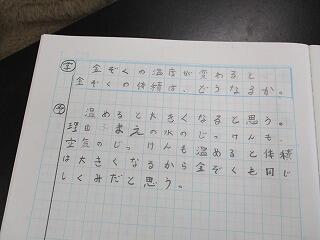 学 金ぞくの温度が変わると
金ぞくの体積は、どうなるか。
予 温めると大きくなると思う。
理由 まえの水のじっけんも、
空気のじっけんも温めると体積
は大きくなるから金ぞくも同じ
しくみだと思う。